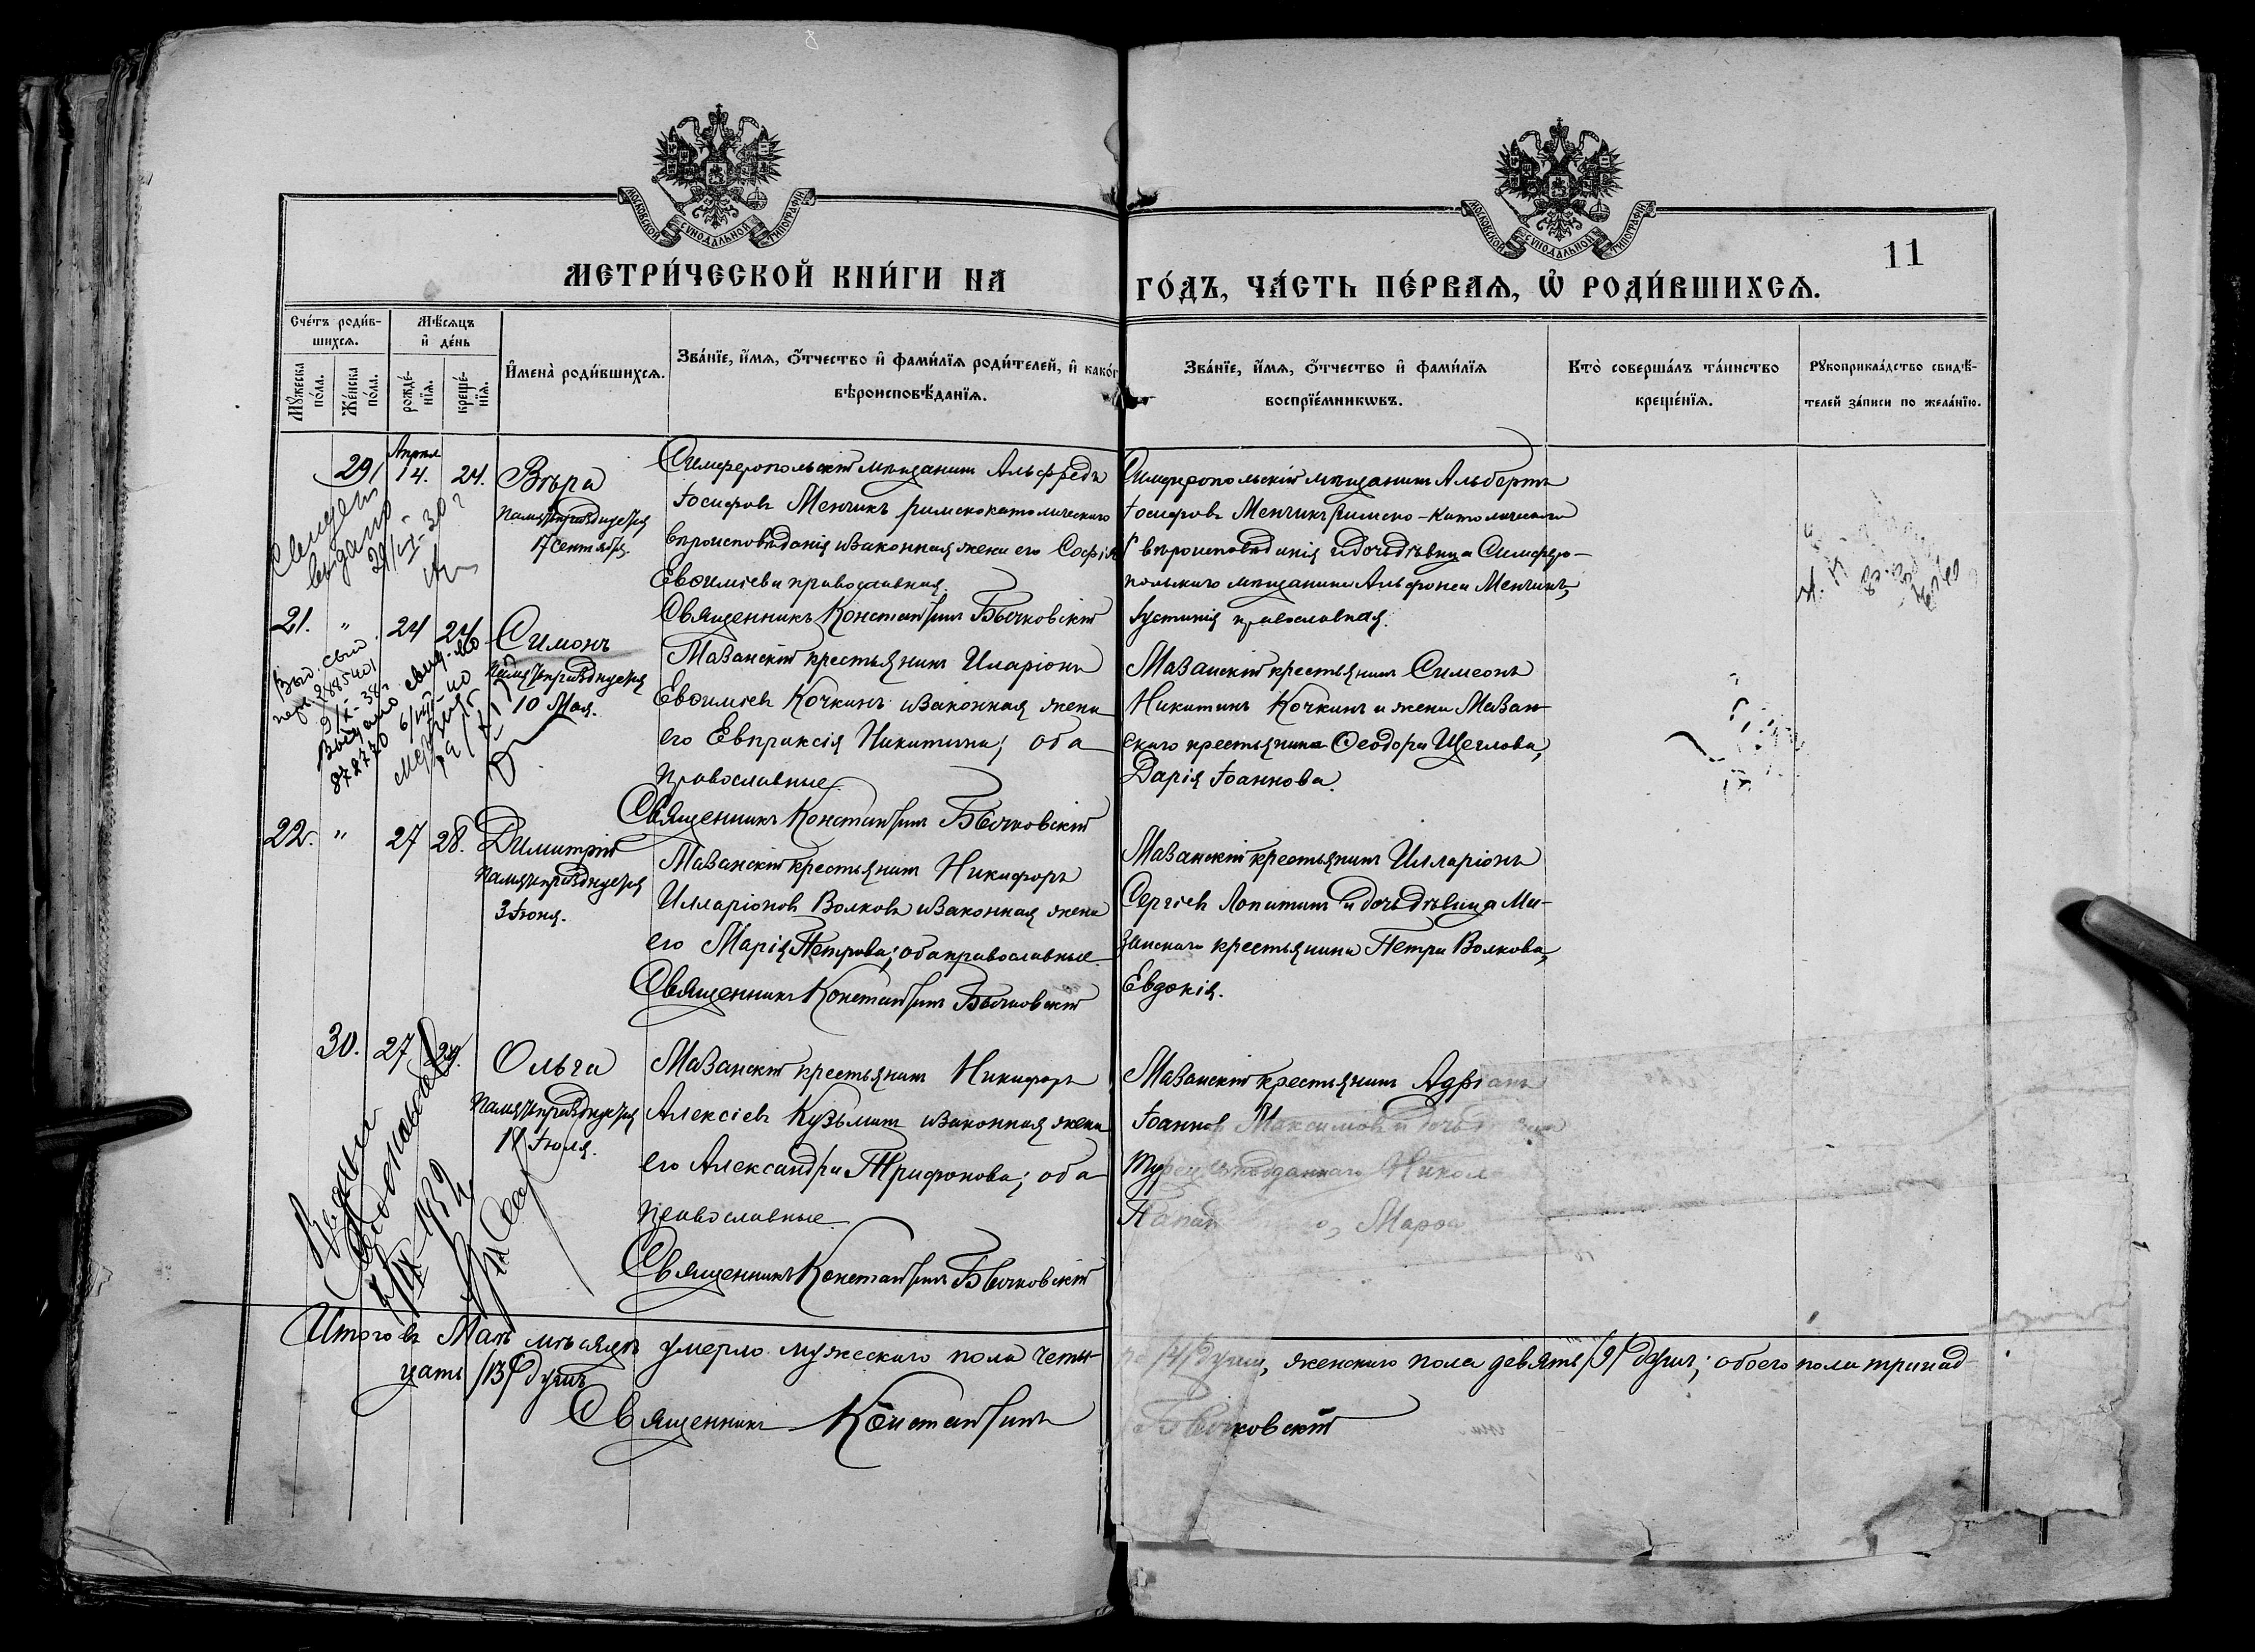 МОСКОВСКОЙ СУНОДАЛЬНОЙ ТИПОГРАФІИ
МОСКОВСКОЙ СУНОДАЛЬНОЙ ТИПОГРАФІИ
11
МЕТРИ́ЧЕСКОЙ КНИ́ГИ НА
ГО́ДЪ, ЧА́СТЬ ПЕ́РВАѦ, Ѡ РОДИ́ВШИХСѦ.
Сче́тъ роди́в-
шихсѧ.
Мꙋ́жеска по́ла.
Же́нска по́ла.
Мѣ́сѧцъ
и҆ де́нь
рожде́-
нїѧ.
креще́-
нїѧ.
И҆мена̀ роди́вшихсѧ.
Зва́нїе, и҆́мѧ, ѻ҆́тчество и҆ фами́лїѧ роди́телей, и҆ како́г
вѣроисповѣ́данїѧ.
Зва́нїе, и҆́мѧ, ѻ҆́тчество и҆ фами́лїѧ
воспрїе́мникѡвъ.
Кто̀ соверша́лъ та́инство
креще́нїѧ.
Рꙋкоприкла́дство свидѣ́-
телей за́писи по жела́нїю.
29
Апрѣл
14.
24.
Вѣра
Память празднуется
17 Сентября.
Симферопольскій мѣщанинъ Альфредъ
Іосифовъ Менчикъ римскокатолическаго
вѣроисповѣданія и законная жена его Софія
Евѳиміева православная.
Священникъ Константинъ Бычковскій
Симферопольскій мѣщанинъ Альбертъ
Іосифовъ Менчикъ Римско-Католическаго
вѣроисповѣданія и дочь дѣвица Симферо-
польскаго мѣщанина Альфонса Менчикъ,
Іустинія православная.
выдано
29/IX-30 г
21.
"
24
24
Симонъ
Память празднуется
10 Мая.
Мазанскій крестьянинъ Иларіонъ
Евѳиміевъ Кочкинъ и законная жена
его Евпраксія Никитина; оба
православные.
Священникъ Константинъ Бычковскій
Мазанскій крестьянинъ Симеонъ
Никитинъ Кочкинъ и жена Мазан-
скаго крестьянина Ѳеодора Щеглова,
Дарія Іоаннова.
9/X-38 г
Выдано свид.
878770 6/VIII-40
22.
"
27
28.
Димитрій
Память празднуется
3 Іюня.
Мазанскій крестьянинъ Никифоръ
Илларіоновъ Волковъ и законная жена
его Марія Петрова; оба православные.
Священникъ Константинъ Бычковскій
Мазанскій крестьянинъ Илларіонъ
Сергіевъ Лопатинъ и дочь дѣвица Ма-
занскаго крестьянина Петра Волкова,
Евдокія.
30.
27
Ольга
Память празднуется
11 Іюля.
Мазанскій крестьянинъ Никифоръ
Алексіевъ Кузьминъ и законная жена
его Александра Трифонова; оба
православные.
Священникъ Константинъ Бычковскій
Мазанскій крестьянинъ Адріанъ
Іоанновъ Максимовъ и дочь
1932
Итого въ Маѣ мѣсяцѣ умерло мужескаго пола четы-
ре /4/ душы, женскаго пола девять /9/ душъ; обоего пола тринад-
цать /13/ душъ
Священникъ Константинъ
Бычковскій